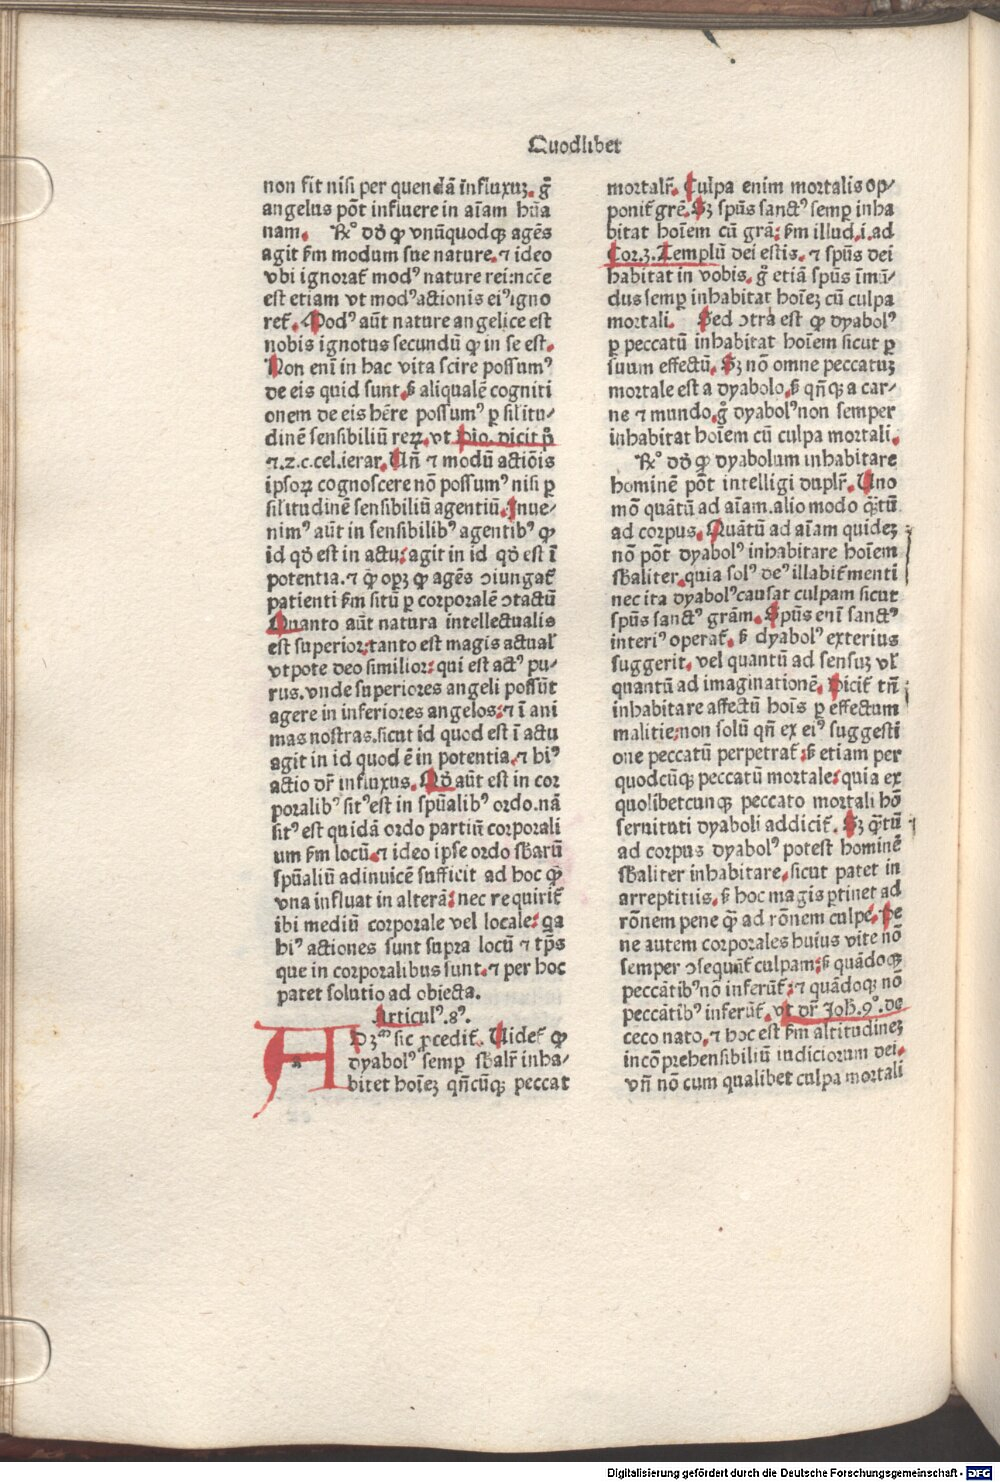 Quodlibet
non fit nisi per quendā influxuꝫ. gͦ
angelus pōt influere in aīam hūa
nam. R̄ꝰ dō ꝙ vnūquodqꝫ agēs
agit ẜm modum sue nature. ⁊ ideo
vbi ignorat᷑ modꝰ nature rei: ncc̄e
est etiam vt modꝰ actionis eiꝰ igno
ret᷑. Modꝰ aūt nature angelice est
nobis ignotus secundū ꝙ in se est.
Non enī in hac vita scire possumꝰ
de eis quid sunt. ẜ aliqualē cogniti
onem de eis hēre possumꝰ ꝑ silitu-
dinē sensibiliū reꝝ. vt Dio. dicit pͦ
⁊.2.c.cel.ierar. Un̄ ⁊ modū actiōis
ipsoꝝ cognoscere nō possumꝰ nisi ꝑ
silitudinē sensibiliū agentiū. Inue-
nimꝰ aūt in sensibilibꝰ agentibꝰ ꝙ
id qd̄ est in actu: agit in id qd̄ est ī
potentia. ⁊ ꝙ oꝑꝫ ꝙ agēs ↄiungat᷑
patienti ẜm sitū ꝑ corporalē ↄtactū
Quanto aūt natura intellectualis
est superior: tanto est magis actual᷑
vtpote deo similior: qui est actꝰ pu-
rus. vnde superiores angeli possūt
agere in inferiores angelos: ⁊ ī ani
mas nostras. sicut id quod est ī actu
agit in id quod ē in potentia. ⁊ hiꝰ
actio dr̄ influxus. Qd̄ aūt est in cor
poralibꝰ sitꝰ est in spūalibꝰ ordo. nā
sitꝰ est quidā ordo partiū corporali
um ẜm locū. ⁊ ideo ipse ordo sb̄arū
spūaliū adinuicē sufficit ad hoc ꝙ
vna influat in alterā: nec requirit᷑
ibi mediū corporale vel locale: qa
hiꝰ actiones sunt supra locū ⁊ tp̄s
que in corporalibus sunt. ⁊ per hoc
patet solutio ad obiecta.
Articulꝰ.8ꝰ.
AD.3ᵐ sic ꝓcedit᷑. Uidet᷑ ꝙ
dyabolꝰ semꝑ sb̄alr̄ inha-
bitet hoīeꝫ qn̄cūqꝫ peccat
mortalr̄. Culpa enim mortalis op-
ponit᷑ gr̄e. Sꝫ spūs sanctꝰ semꝑ inha
bitat hoīem cū grā: ẜm illud.i.ad
Cor.3. Templū dei estis. ⁊ spūs dei
habitat in vobis. gͦ etiā spūs īmū-
dus semꝑ inhabitat hoīeꝫ cū culpa
mortali. Sed ↄtra est ꝙ dyabolꝰ
ꝑ peccatū inhabitat hoīem sicut ꝑ
suum effectū. Sꝫ nō omne peccatuꝫ
mortale est a dyabolo. ẜ qn̄qꝫ a car-
ne ⁊ mundo. gͦ dyabolꝰ non semper
inhabitat hoīem cū culpa mortali.
R̄ꝰ dō ꝙ dyabolum inhabitare
hominē pōt intelligi duplr̄. Uno
mō quātū ad aīam. alio modo q̄tū
ad corpus. Quātū ad aīam quideꝫ
nō pōt dyabolꝰ inhabitare hoīem
sb̄aliter. quia solꝰ deꝰ illabit᷑ menti
nec ita dyabolꝰ causat culpam sicut
spūs sanctꝰ grām. Spūs enī sanctꝰ
interiꝰ operat᷑. ẜ dyabolꝰ exterius
suggerit. vel quantū ad sensuꝫ vl᷑
quantū ad imaginationē. Dicit᷑ tn̄
inhabitare affectū hoīs ꝑ effectum
malitie: non solū qn̄ ex eiꝰ suggesti
one peccatū perpetrat᷑: ẜ etiam per
quodcūqꝫ peccatū mortale: quia ex
quolibetcunqꝫ peccato mortali hō
seruituti dyaboli addicit᷑. Sꝫ q̄tū
ad corpus dyabolꝰ potest hominē
sb̄aliter inhabitare. sicut patet in
arreptitiis. ẜ hoc magis ꝑtinet ad
rōnem pene ꝙ̄ ad rōnem culpe. Pe
ne autem corporales huius vite nō
semper ↄsequūt᷑ culpam: ẜ quādoqꝫ
peccātibꝰ nō inferūt᷑: ⁊ quādoqꝫ nō
peccātibꝰ inferūt᷑. vt dr̄ Joh.9ꝰ. de
ceco nato. ⁊ hoc est ẜm altitudineꝫ
incōprehensibiliū iudiciorum dei.
vn̄ nō cum qualibet culpa mortali
Digitalisierung gefördert durch die Deutsche Forschungsgemeinschaft - DFG